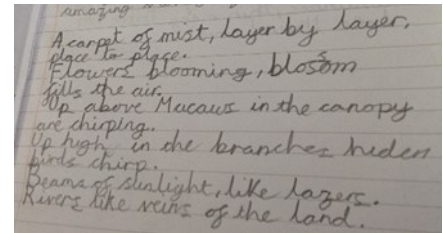 amazing
A carpet of mist, layer by layer,
place to place.
Flowers blooming, blossom
fills the air.
Up above Macaws in the canopy
are chirping.
Up high in the branches hiden
birds chirp.
Beams of sunlight, like lazers.
Rivers like veins of the land.